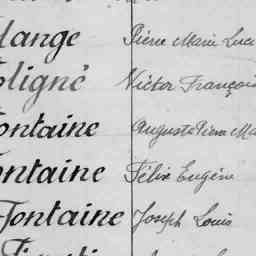 lange Pierre Marie Luci
oligné Victor François
ontaine Auguste Pierre Ma
ontaine Félix Eugène
Fontaine Joseph Louis